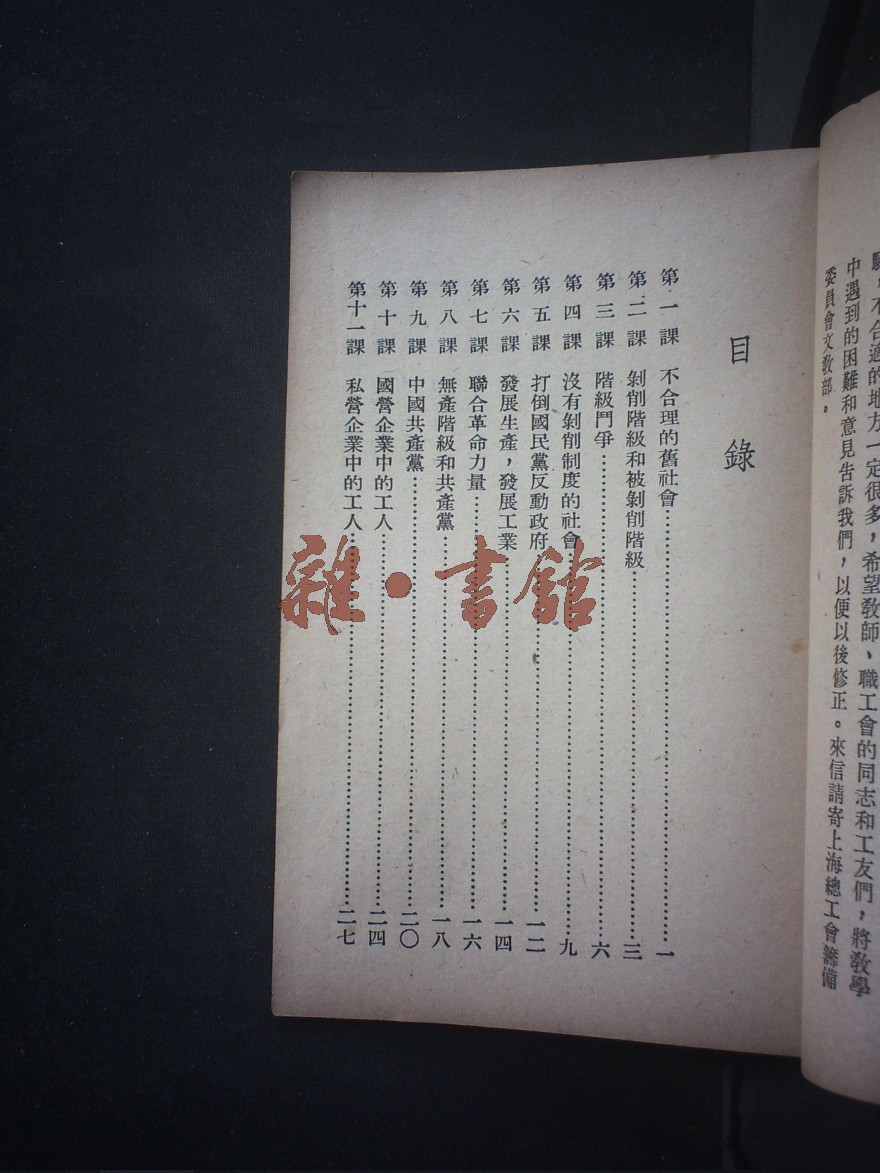 不合適的地方一定很多，希望敎師、職工會的同志和工友們，將敎學
中遇到的困難和意見告訴我們，以便以後修正。來信請寄上海總工會籌備
委員會文敎部。
目錄
第一課 不合理的舊社會……一
第二課 剝削階級和被剝削階級……三
第三課 階級鬥爭……六
第四課 沒有剝削制度的社會……九
第五課 打倒國民黨反動政府……一二
第六課 發展生產，發展工業……一四
第七課 聯合革命力量……一六
第八課 無產階級和共產黨……一八
第九課 中國共產黨……二〇
第十課 國營企業中的工人……二四
第十一課 私營企業中的工人……二七
雜·書館